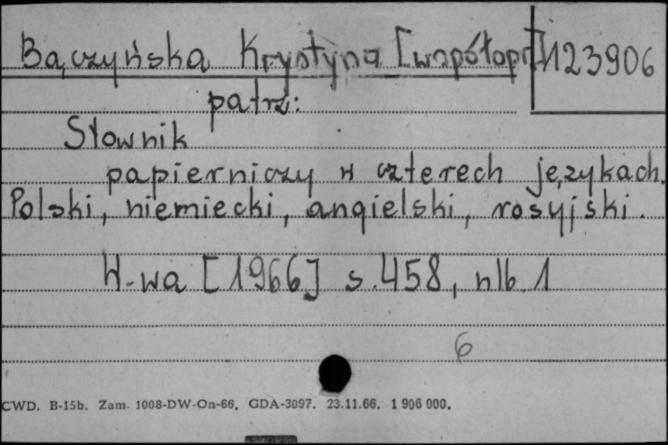 Bączyńska Krystyna [współopr.] 123906
patrz:
Słownik
papierniczy w czterech językach.
Polski, niemiecki, angielski, rosyjski.
W-wa [1966] s. 458, nlb. 1
6
CWD. B-15b. Zam. 1008-DW-On-66. GDA-3097. 23.11.66. 1 906 000.